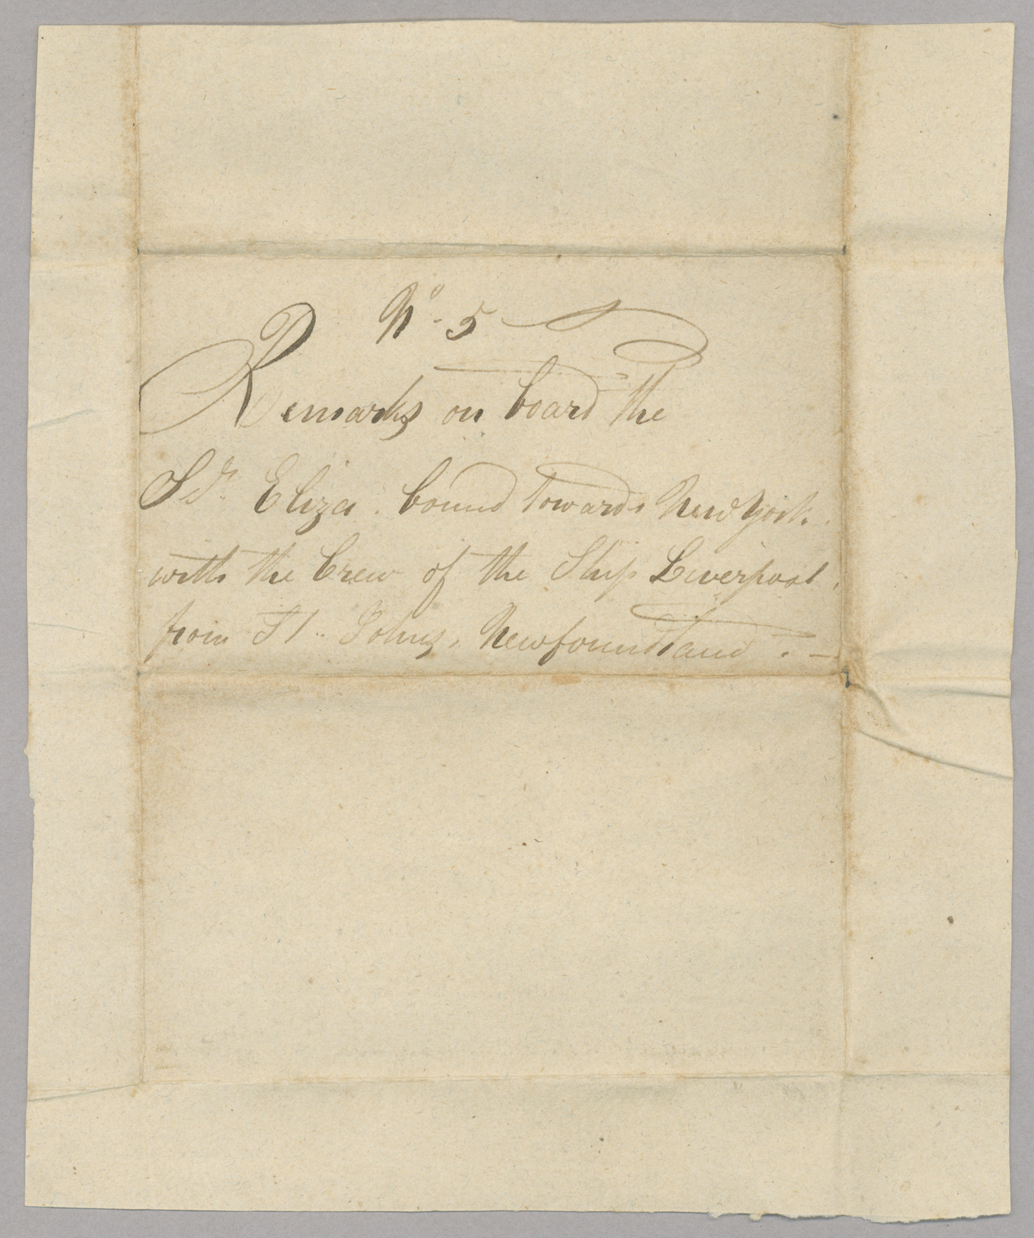 No. 5
Remarks on board the
Sdr. Eliza. bound towards New York.
with the Crew of the Ship Liverpool,
from St.. Johns, Newfoundland. —